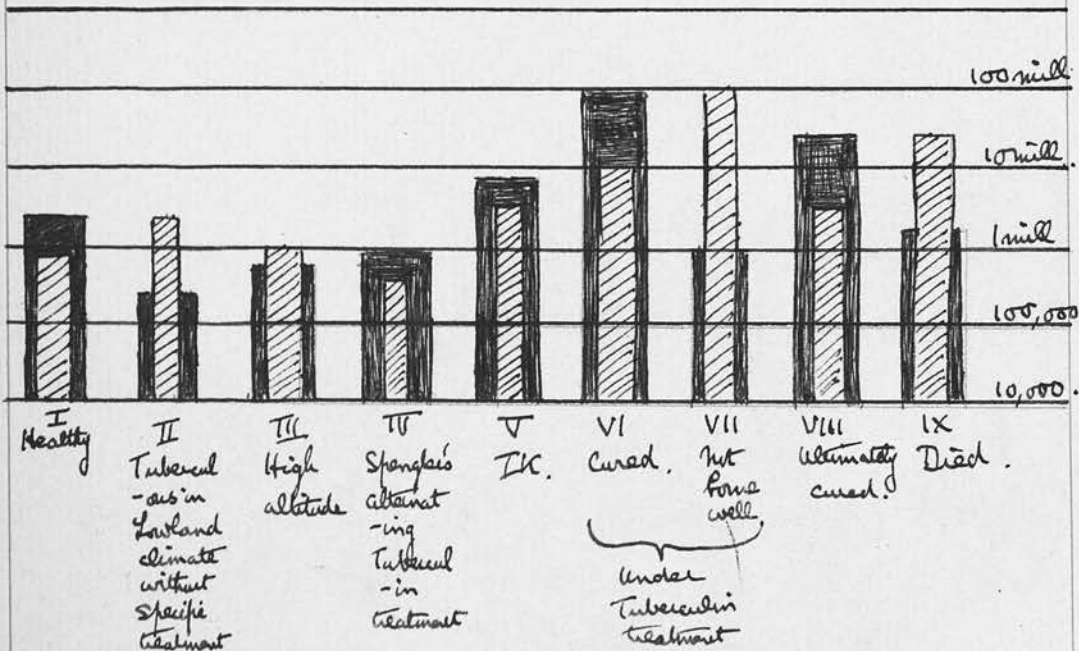 100 mill
10 mill.
1 mill
100,000
10,000.
I
Healthy
II
Tubercul
-ous in
Lowland
climate
without
Specific
treatment
III
High
altitude
IV
Spengler's
alternat
-ing
Tubercul
-in
treatment
V
IK.
VI
Cured.
VII
Not
borne
well.
VIII
Ultimately
cured.
IX
Died.
Under
Tuberculin
treatment